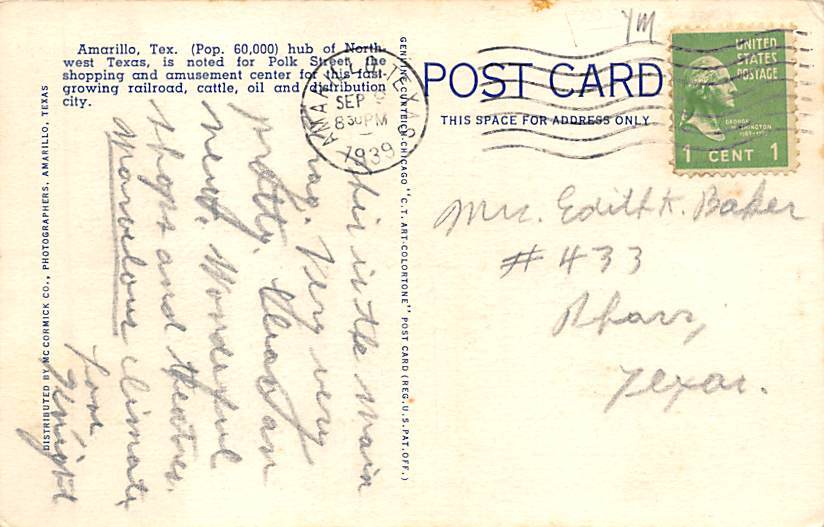 Amarillo, Tex. (Pop. 60,000) hub of North-
west Texas, is noted for Polk Street, the
shopping and amusement center for this fast-
growing railroad, cattle, oil and distribution
city.
DISTRIBUTED BY MCCORMICK CO., PHOTOGRAPHERS, AMARILLO, TEXAS
This is the main
drag. Very very
pretty. Clean an
new. Wonderful
shops and theatres.
Marvelous climate
Love
GENUINE CURTEICH-CHICAGO "C.T. ART-COLORTONE" POST CARD (REG.U.S.PAT.OFF.)
POST CARD
THIS SPACE FOR ADDRESS ONLY
AMARILLO, TEXAS
SEP 9
8 30 PM
1939
YM
UNITED
STATES
POSTAGE
GEORGE
WASHINGTON
1 CENT 1
Mrs. Edith K. Baker
#433
Pharr,
Texas.